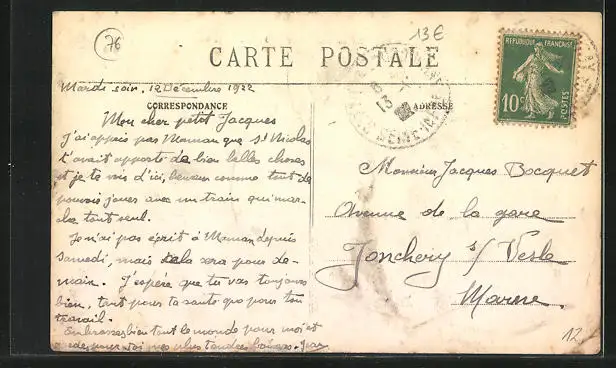 76
13€
CARTE POSTALE
REPUBLIQUE FRANÇAISE
10c
POSTES
Mardi soir, 12 Décembre 1922
CORRESPONDANCE
ADRESSE
Mon cher petit Jacques
J'ai appris par Maman que St Nicolas
t'avait apporté de bien belles choses
et je te vois d'ici, heureux comme tout de
pouvoir jouer avec un train qui mar-
che tout seul.
Je n'ai pas écrit à Maman depuis
Samedi, mais cela sera pour de-
main. J'espère que tu vas toujours
bien, tant pour ta santé que pour ton
travail.
Embrasses bien tout le monde pour moi et
pour toi mes plus tendres baisers.
Monsieur Jacques Bocquet
Avenue de la gare
Jonchery s/ Vesle
Marne.
12